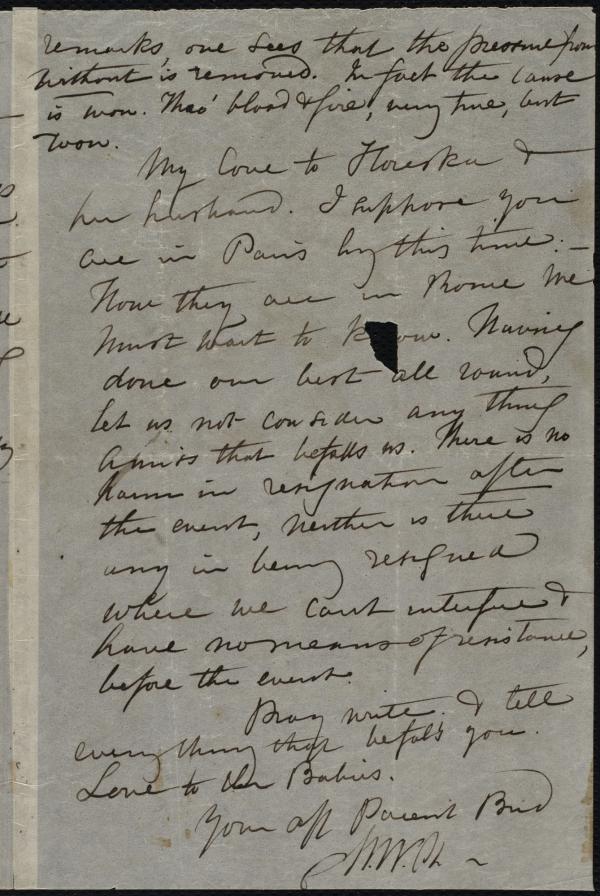 remarks, one sees that the pressure from
without is removed. In fact the cause
is won. Thro' blood & fire, very true, but
won.
My love to Floreska &
her husband. I suppose you
are in Paris by this time:—
How they are in Rome we
must wait to know. Having
done our best all round,
let us not consider any thing
amiss that befalls us. There is no
harm in resignation after
the event, neither is there
any in being resigned
where we cant interfere &
have no means of resistance,
before the event.
Pray write & tell
everything that befalls you.
Love to the Babies.
Your aff Parent Bird
M.W.Ch